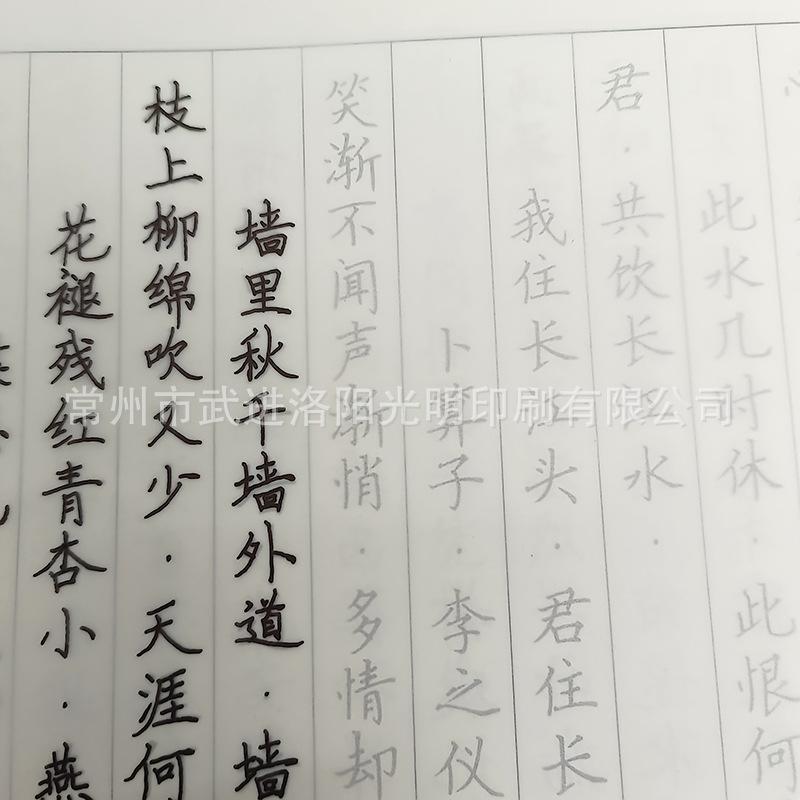 花褪残红青杏小·燕
枝上柳绵吹又少·天涯何
墙里秋千墙外道·墙
笑渐不闻声渐悄·多情却
卜算子·李之仪
我住长江头·君住长
君·共饮长江水·
此水几时休·此恨何
常州市武进洛阳光明印刷有限公司